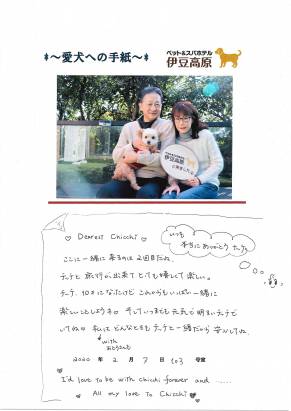 ～愛犬への手紙～
ペット&スパホテル
伊豆高原
ペット&スパホテル
伊豆高原
に来ました♪
Dearest Chicchi
いつも
本当にありがとう チッチ。
ここに一緒に来るのは 2回目だね。
チッチと 旅行が出来て とても嬉しくて 楽しい。
チッチ、10才になったけど これからもいっぱい一緒に
楽しいことしようネ。 そしていつまでも 元気で 明るいチッチで
いてね。 私は どんなときも チッチと一緒だから 安心してね。
with
おとうさんも
2020 年 2 月 7 日 103 号室
I'd love to be with chicchi forever and ......
All my love to Chicchi